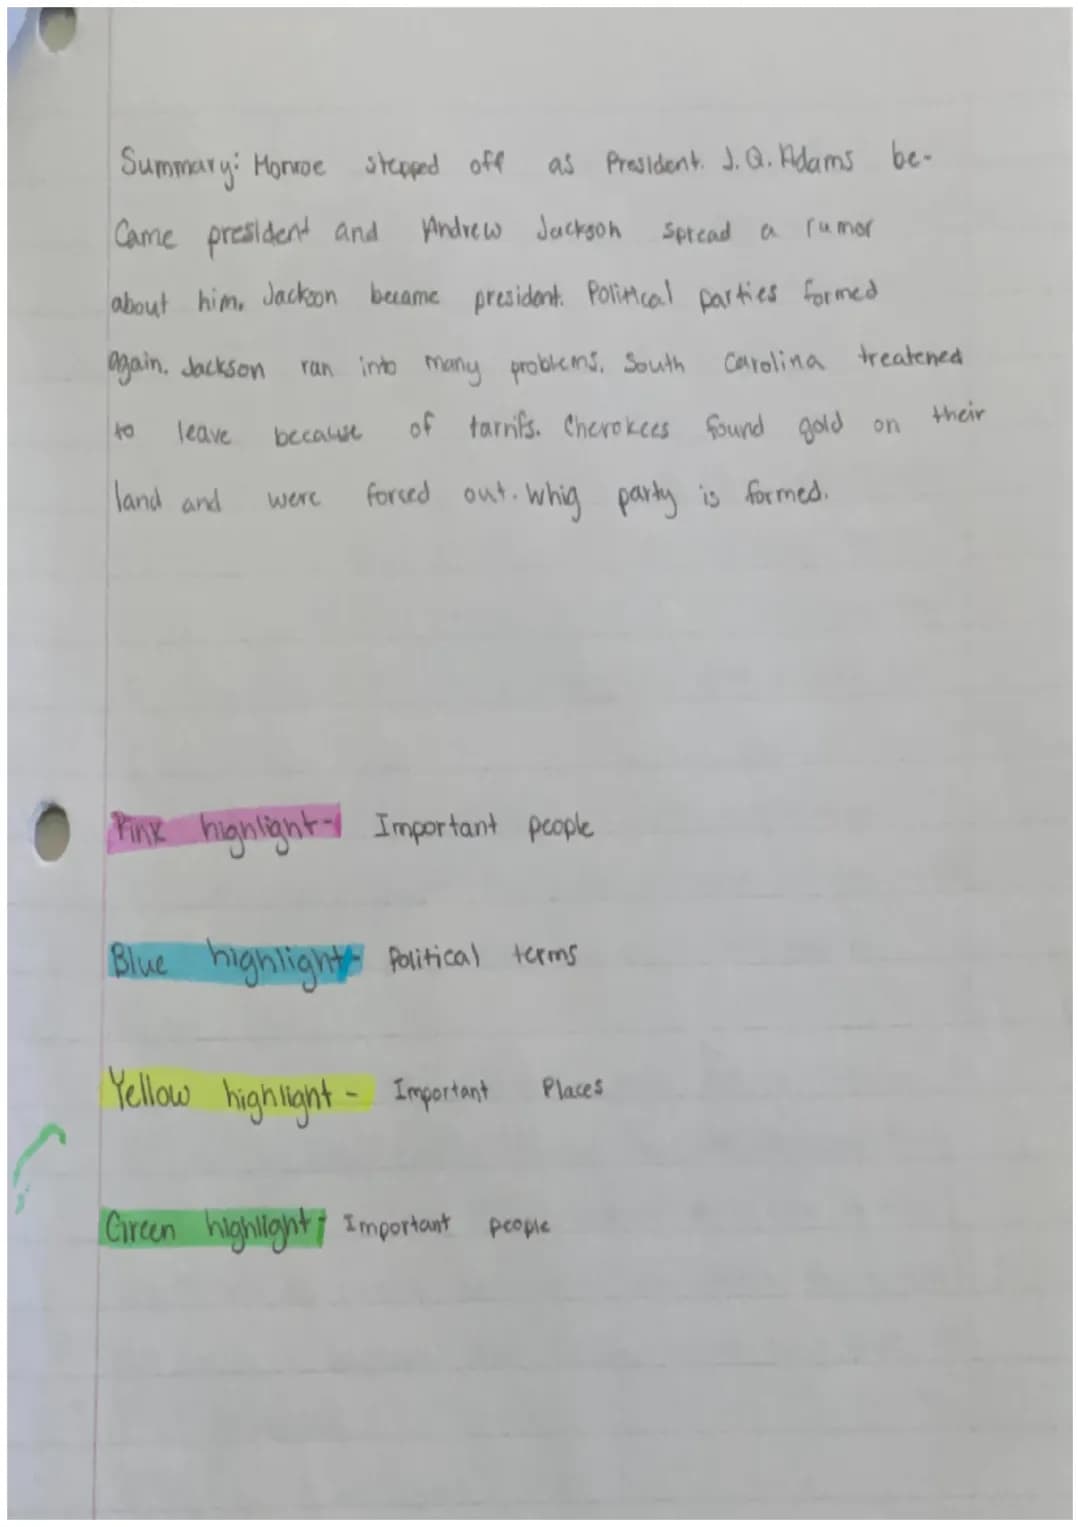 Summary: Monroe stepped off as President. J. Q. Adams be-
Came president and Andrew Jackson spread a rumor
about him. Jackson became president. Political parties formed
again. Jackson ran into many problems. South Carolina treatened
to leave because of tarrifs. Cherokees found gold on their
land and were forced out. Whig party is formed.
Pink highlight- Important people
Blue highlight- Political terms
Yellow highlight - Important Places
Green highlight- Important people